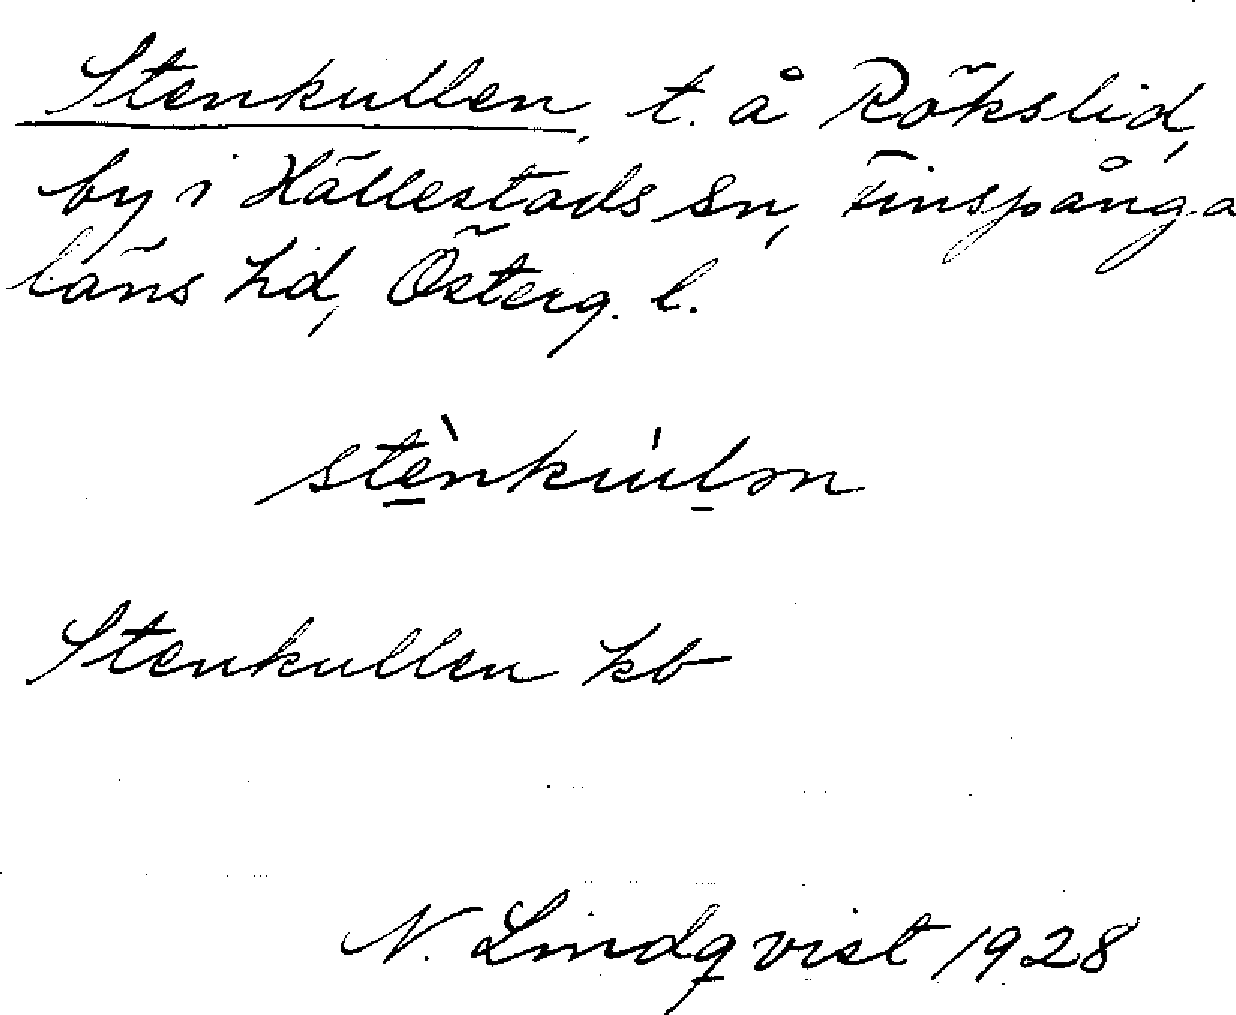 Stenkullen, t. å Rökslid,
by i Hällestads sn, Finspånga
läns hd, Österg. l.
stènkúlən
Stenkullen kb
N. Lindqvist 1928